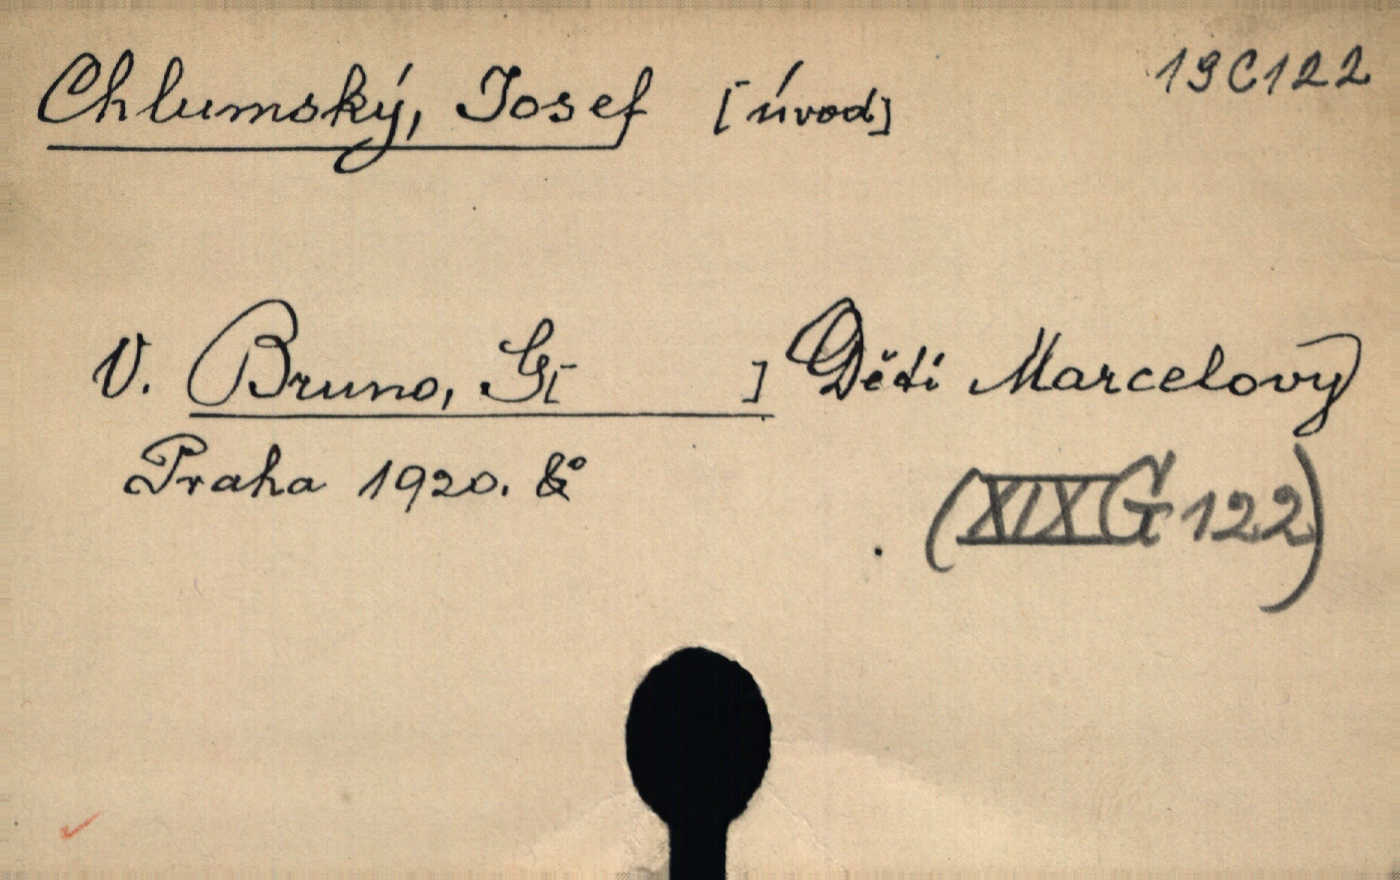 Chlumský, Josef [úvod] 19C122
V. Bruno, G[ ] Děti Marcelovy
Praha 1920. 8°
(XIX G 122)